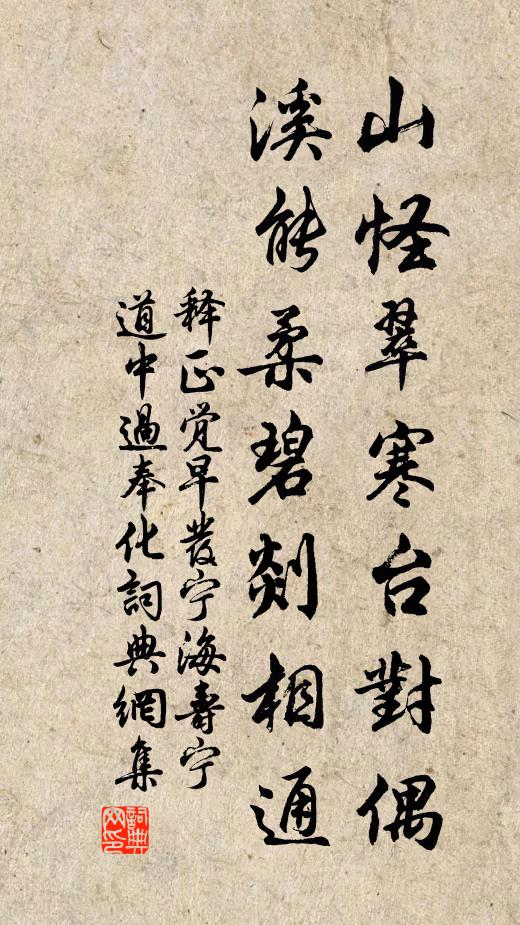 山怪翠寒台對偶
溪能柔碧剡相通
释正觉早發宁海壽宁
道中過奉化詞典網集
詞典
网印